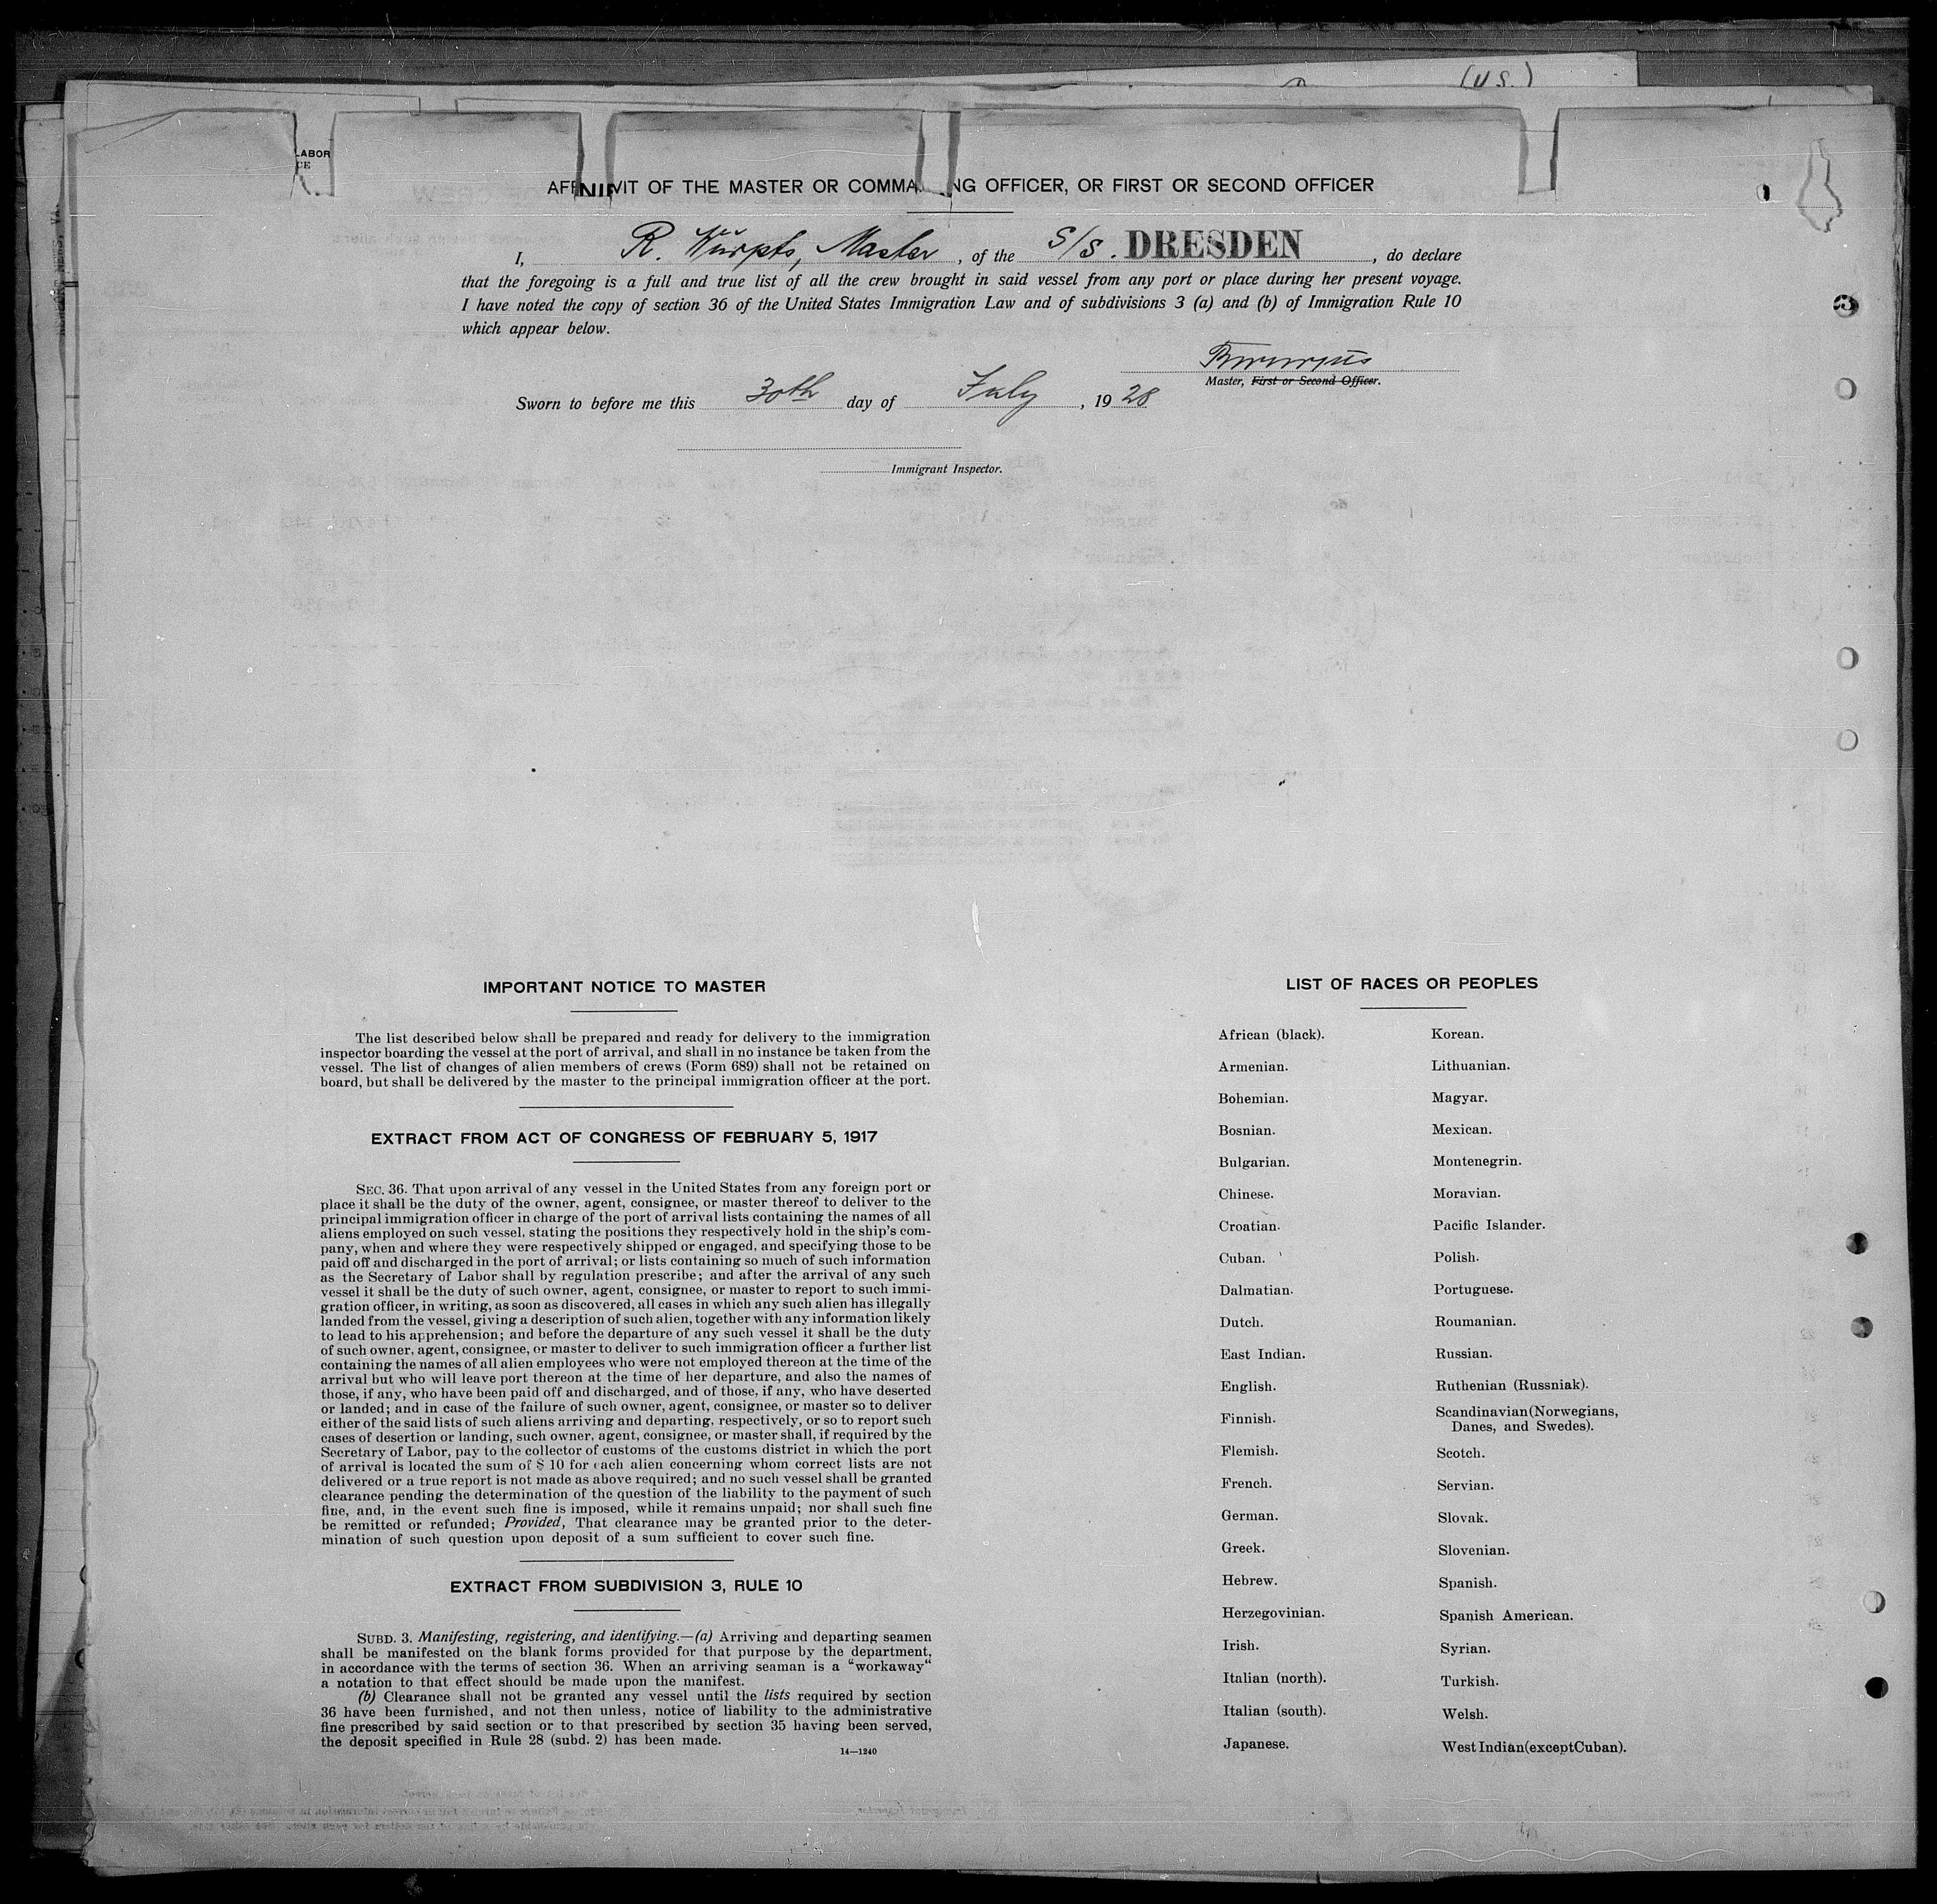 (U.S.)
LABOR
CE
AFFIDAVIT OF THE MASTER OR COMMANDING OFFICER, OR FIRST OR SECOND OFFICER
I, R. Würpts, Master, of the S/S. DRESDEN, do declare
that the foregoing is a full and true list of all the crew brought in said vessel from any port or place during her present voyage.
I have noted the copy of section 36 of the United States Immigration Law and of subdivisions 3 (a) and (b) of Immigration Rule 10
which appear below.
Master, First or Second Officer.
Sworn to before me this 30th day of July, 1928
Immigrant Inspector.
IMPORTANT NOTICE TO MASTER
The list described below shall be prepared and ready for delivery to the immigration
inspector boarding the vessel at the port of arrival, and shall in no instance be taken from the
vessel. The list of changes of alien members of crews (Form 689) shall not be retained on
board, but shall be delivered by the master to the principal immigration officer at the port.
EXTRACT FROM ACT OF CONGRESS OF FEBRUARY 5, 1917
SEC. 36. That upon arrival of any vessel in the United States from any foreign port or
place it shall be the duty of the owner, agent, consignee, or master thereof to deliver to the
principal immigration officer in charge of the port of arrival lists containing the names of all
aliens employed on such vessel, stating the positions they respectively hold in the ship's com-
pany, when and where they were respectively shipped or engaged, and specifying those to be
paid off and discharged in the port of arrival; or lists containing so much of such information
as the Secretary of Labor shall by regulation prescribe; and after the arrival of any such
vessel it shall be the duty of such owner, agent, consignee, or master to report to such immi-
gration officer, in writing, as soon as discovered, all cases in which any such alien has illegally
landed from the vessel, giving a description of such alien, together with any information likely
to lead to his apprehension; and before the departure of any such vessel it shall be the duty
of such owner, agent, consignee, or master to deliver to such immigration officer a further list
containing the names of all alien employees who were not employed thereon at the time of the
arrival but who will leave port thereon at the time of her departure, and also the names of
those, if any, who have been paid off and discharged, and of those, if any, who have deserted
or landed; and in case of the failure of such owner, agent, consignee, or master so to deliver
either of the said lists of such aliens arriving and departing, respectively, or so to report such
cases of desertion or landing, such owner, agent, consignee, or master shall, if required by the
Secretary of Labor, pay to the collector of customs of the customs district in which the port
of arrival is located the sum of $ 10 for each alien concerning whom correct lists are not
delivered or a true report is not made as above required; and no such vessel shall be granted
clearance pending the determination of the question of the liability to the payment of such
fine, and, in the event such fine is imposed, while it remains unpaid; nor shall such fine
be remitted or refunded; Provided, That clearance may be granted prior to the deter-
mination of such question upon deposit of a sum sufficient to cover such fine.
EXTRACT FROM SUBDIVISION 3, RULE 10
SUBD. 3. Manifesting, registering, and identifying.—(a) Arriving and departing seamen
shall be manifested on the blank forms provided for that purpose by the department,
in accordance with the terms of section 36. When an arriving seaman is a “workaway“
a notation to that effect should be made upon the manifest.
(b) Clearance shall not be granted any vessel until the lists required by section
36 have been furnished, and not then unless, notice of liability to the administrative
fine prescribed by said section or to that prescribed by section 35 having been served,
the deposit specified in Rule 28 (subd. 2) has been made.
14—1240
LIST OF RACES OR PEOPLES
African (black).
Armenian.
Bohemian.
Bosnian.
Bulgarian.
Chinese.
Croatian.
Cuban.
Dalmatian.
Dutch.
East Indian.
English.
Finnish.
Flemish.
French.
German.
Greek.
Hebrew.
Herzegovinian.
Irish.
Italian (north).
Italian (south).
Japanese.
Korean.
Lithuanian.
Magyar.
Mexican.
Montenegrin.
Moravian.
Pacific Islander.
Polish.
Portuguese.
Roumanian.
Russian.
Ruthenian (Russniak).
Scandinavian(Norwegians,
Danes, and Swedes).
Scotch.
Servian.
Slovak.
Slovenian.
Spanish.
Spanish American.
Syrian.
Turkish.
Welsh.
West Indian(exceptCuban).